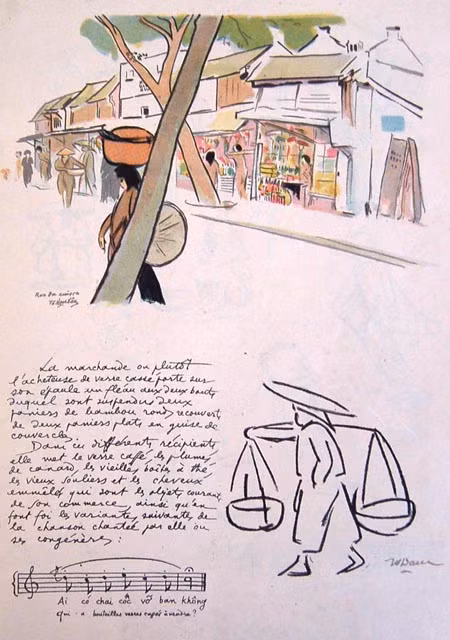 Rue du cuivre
La marchande ou plutôt
l'acheteuse de verre cassé porte sur
son épaule un fléau aux deux bouts
duquel sont suspendus deux
paniers de bambou ronds recouverts
de deux paniers plats en guise de
couvercle.
Dans ces différents récipients
elle met le verre cassé, les plumes
de canard, les vieilles boîtes à thé,
les vieux souliers et les cheveux
emmêlés qui sont les objets courants
de son commerce, ainsi qu'en
font foi les variantes suivantes de
la chanson chantée par elle ou
ses congénères :
Ai có chai cốc vỡ bán không
Qui a bouteilles verres cassés à vendre ?